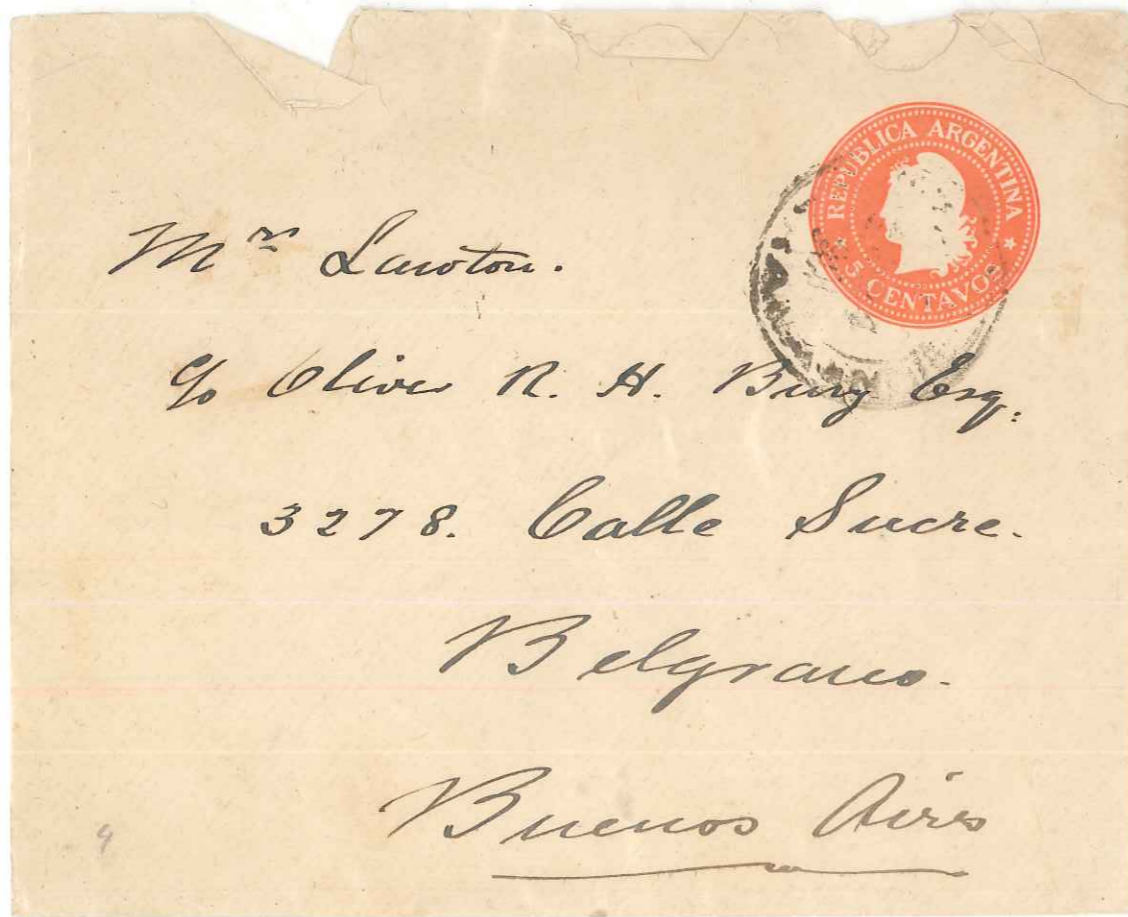 REPUBLICA ARGENTINA
5 CENTAVOS
Mr Lawton.
c/o Oliver R. H. Bury Esq:
3278. Calle Sucre.
Belgrano.
Buenos Aires
4